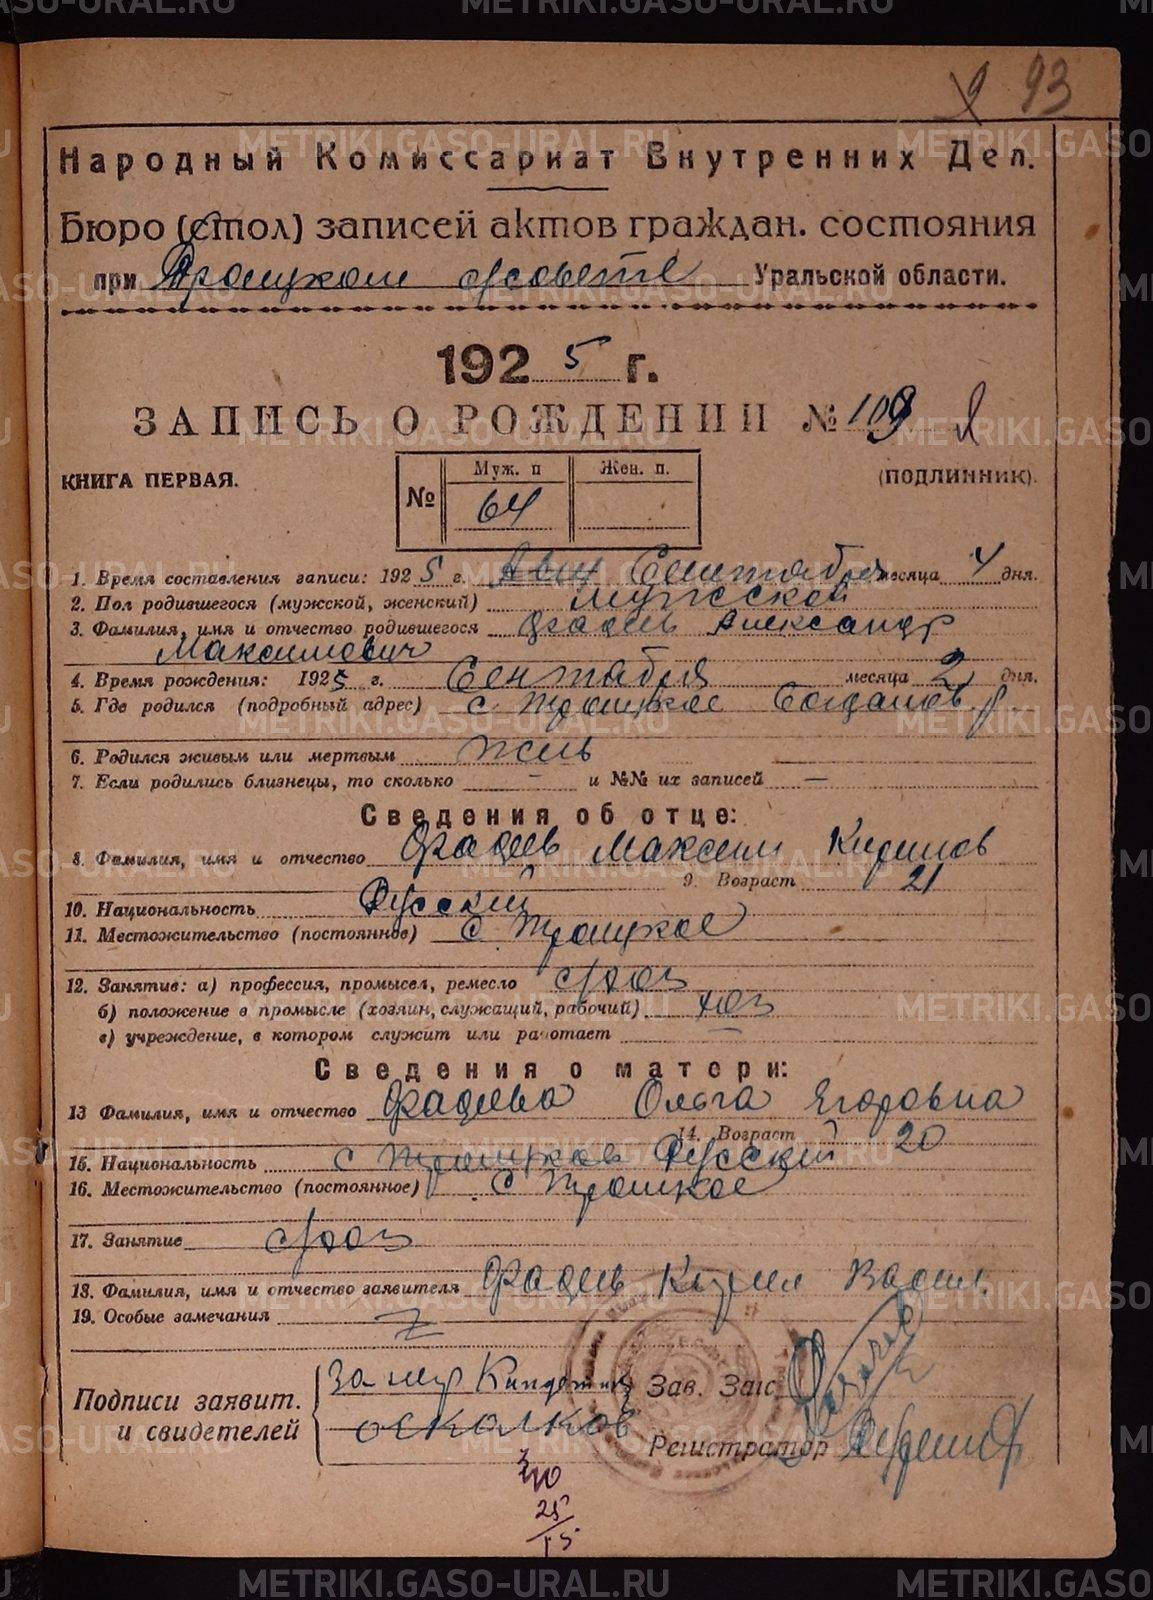 93
Народный Комиссариат Внутренних Дел.
Бюро (стол) записей актов граждан. состояния
при Троицком с/совете Уральской области.
1925 г.
ЗАПИСЬ О РОЖДЕНИИ № 109
КНИГА ПЕРВАЯ.
№ Муж. п Жен. п.
64
(подлинник).
1. Время составления записи: 1925 г. Сентября месяца 4 дня.
2. Пол родившегося (мужской, женский) мужской
3. Фамилия, имя и отчество родившегося Фадеев Александр
Максимович
4. Время рождения: 1925 г. Сентября месяца 2 дня.
5. Где родился (подробный адрес) с. Троицкое Богданов. р.
6. Родился живым или мертвым жив
7. Если родились близнецы, то сколько — и №№ их записей —
Сведения об отце:
8. Фамилия, имя и отчество Фадеев Максим Кирилов
9. Возраст 21
10. Национальность Русский
11. Местожительство (постоянное) с. Троицкое
12. Занятие: а) профессия, промысел, ремесло
б) положение в промысле (хозяин, служащий, рабочий) хоз
в) учреждение, в котором служит или работает —
Сведения о матери:
13 Фамилия, имя и отчество Фадеева Ольга Егоровна
14. Возраст 20
15. Национальность с Троицкое Русский
16. Местожительство (постоянное) с Троицкое
17. Занятие
18. Фамилия, имя и отчество заявителя Фадеев Кирил Васил.
19. Особые замечания
Подписи заявит. и свидетелей
За негр
Осколков
Зав. Загс.
Регистратор
25
15
METRIKI.GASO-URAL.RU